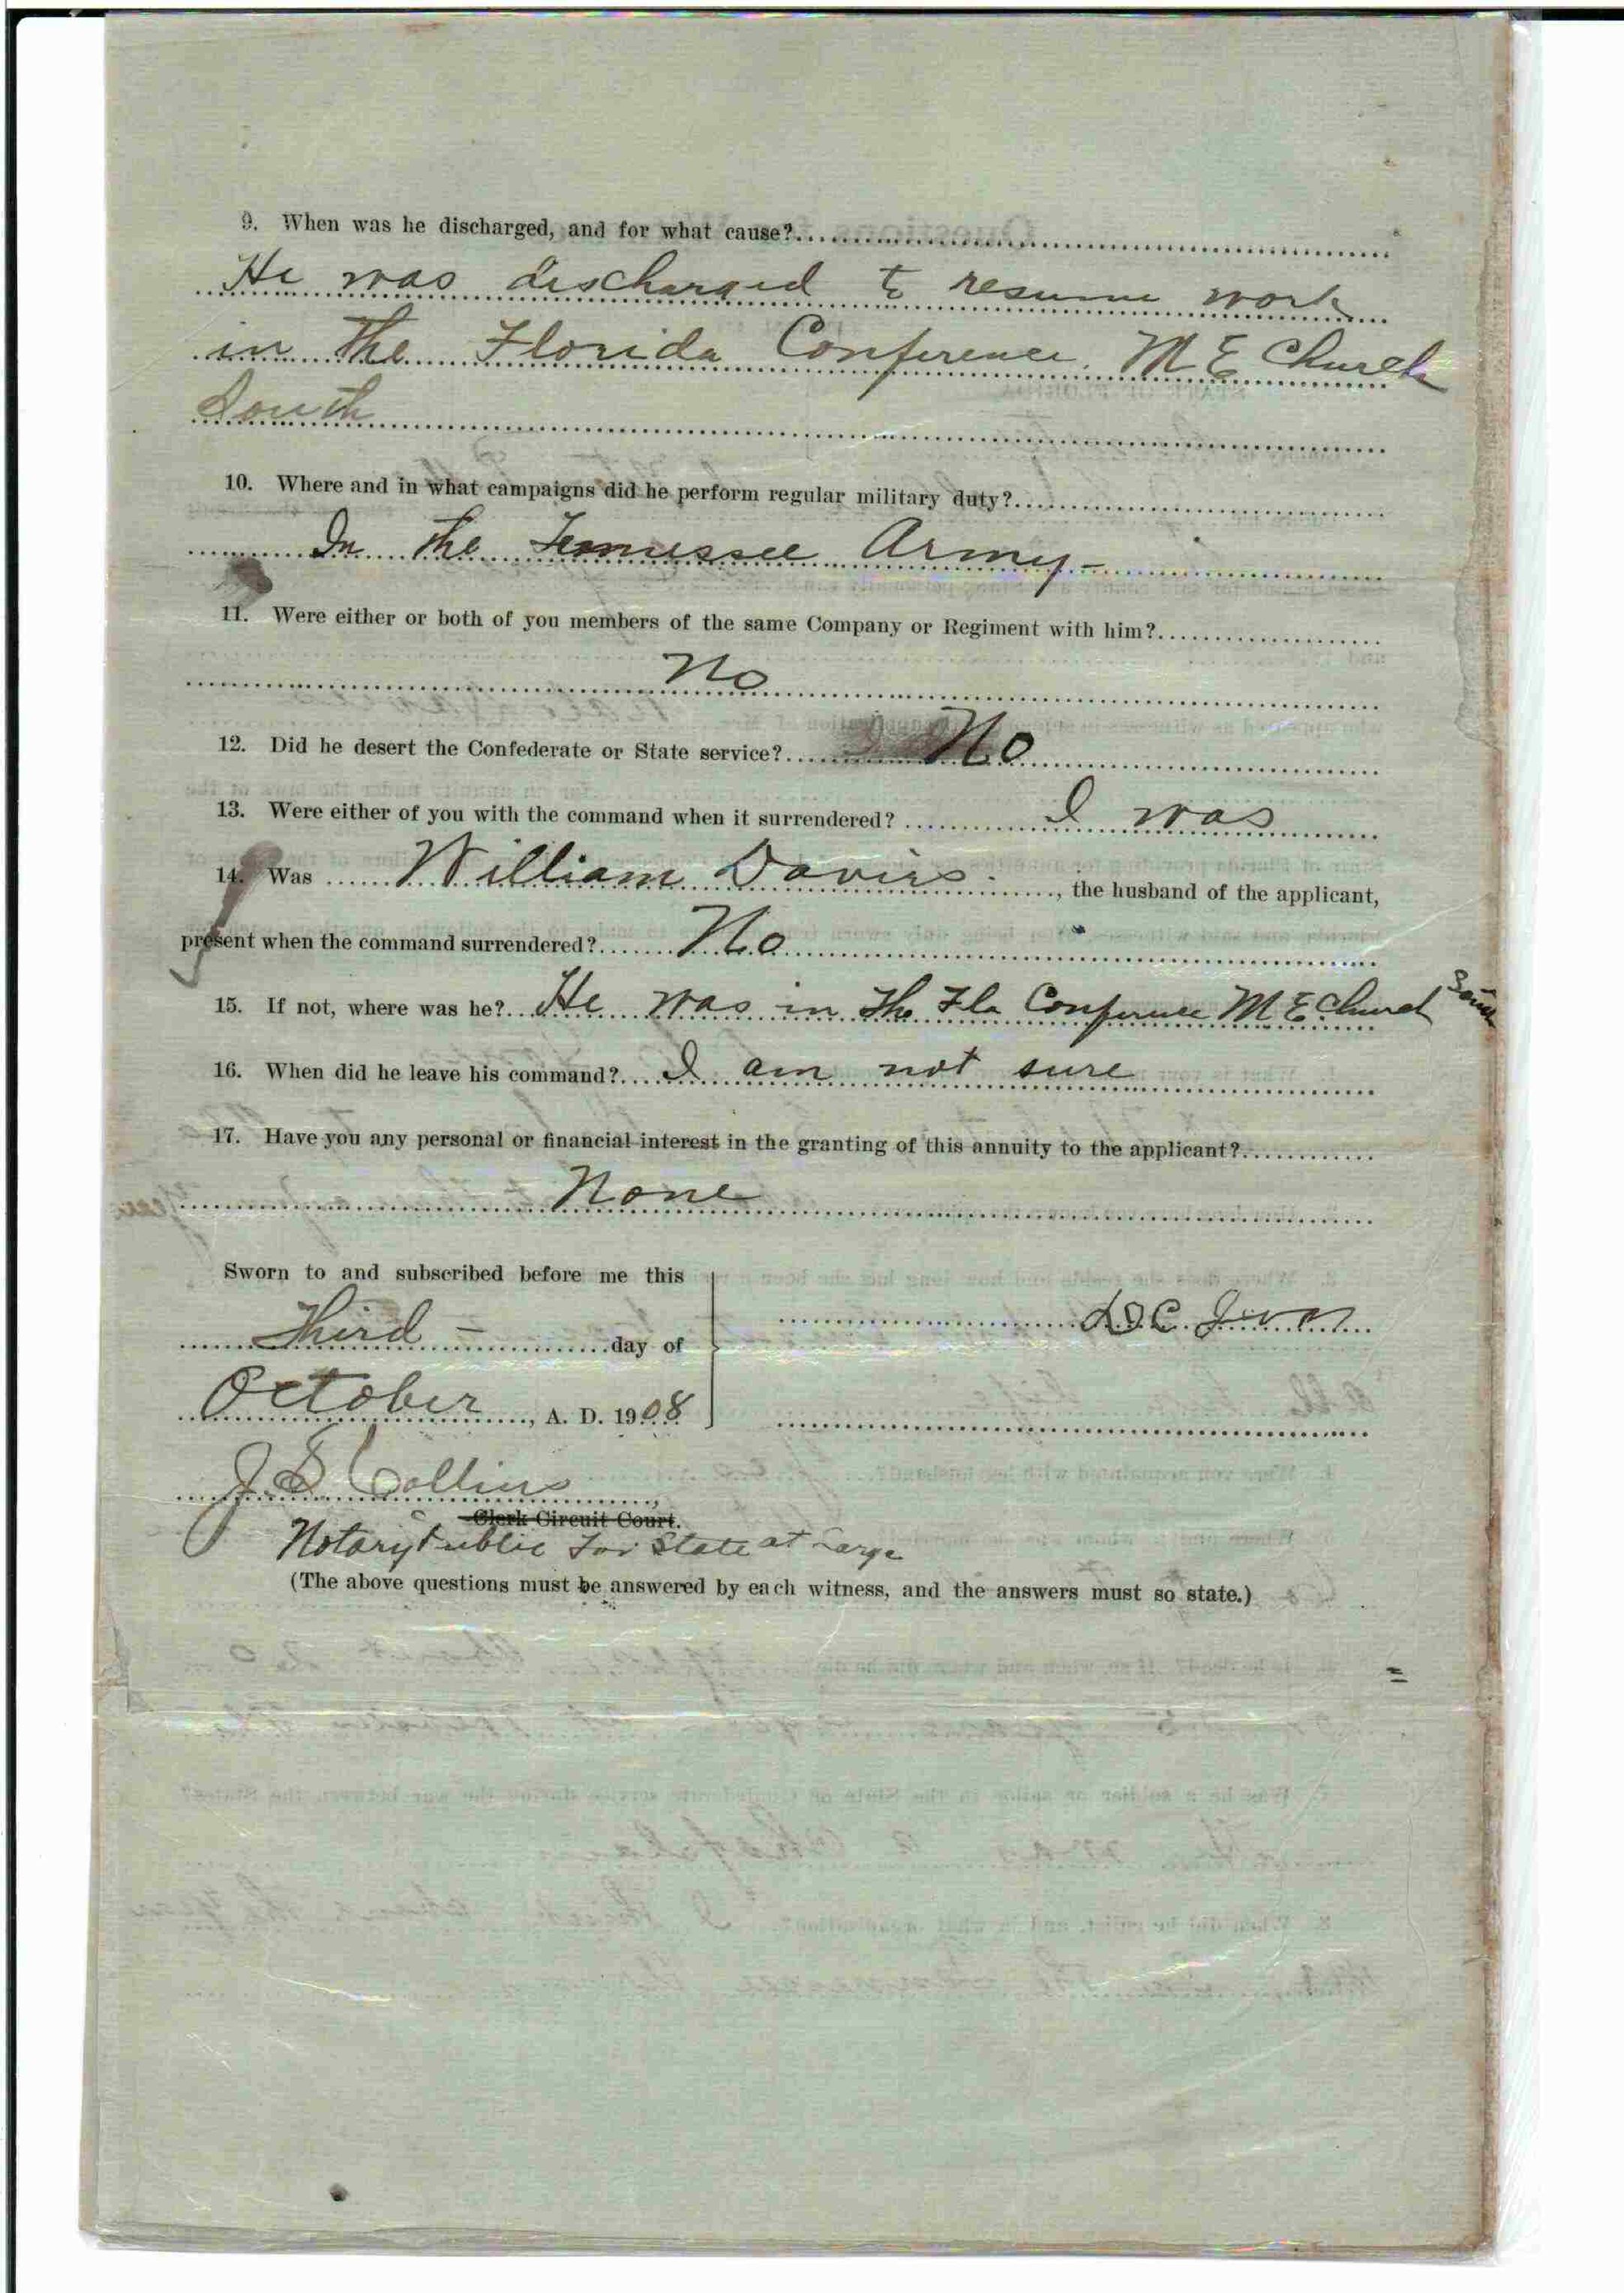 9. When was he discharged, and for what cause?
He was discharged to resume work
in the Florida Conference M E Church
South
10. Where and in what campaigns did he perform regular military duty?
In the Tennessee Army -
11. Were either or both of you members of the same Company or Regiment with him?
No
12. Did he desert the Confederate or State service? No
13. Were either of you with the command when it surrendered? I was
14. Was William Davies, the husband of the applicant,
present when the command surrendered? No
15. If not, where was he? He was in the Fla Conference M E Church South
16. When did he leave his command? I am not sure
17. Have you any personal or financial interest in the granting of this annuity to the applicant?
None
Sworn to and subscribed before me this
Third - day of
October, A. D. 1908
J. S. Collins,
Clerk Circuit Court.
Notary Public For State at Large
(The above questions must be answered by each witness, and the answers must so state.)